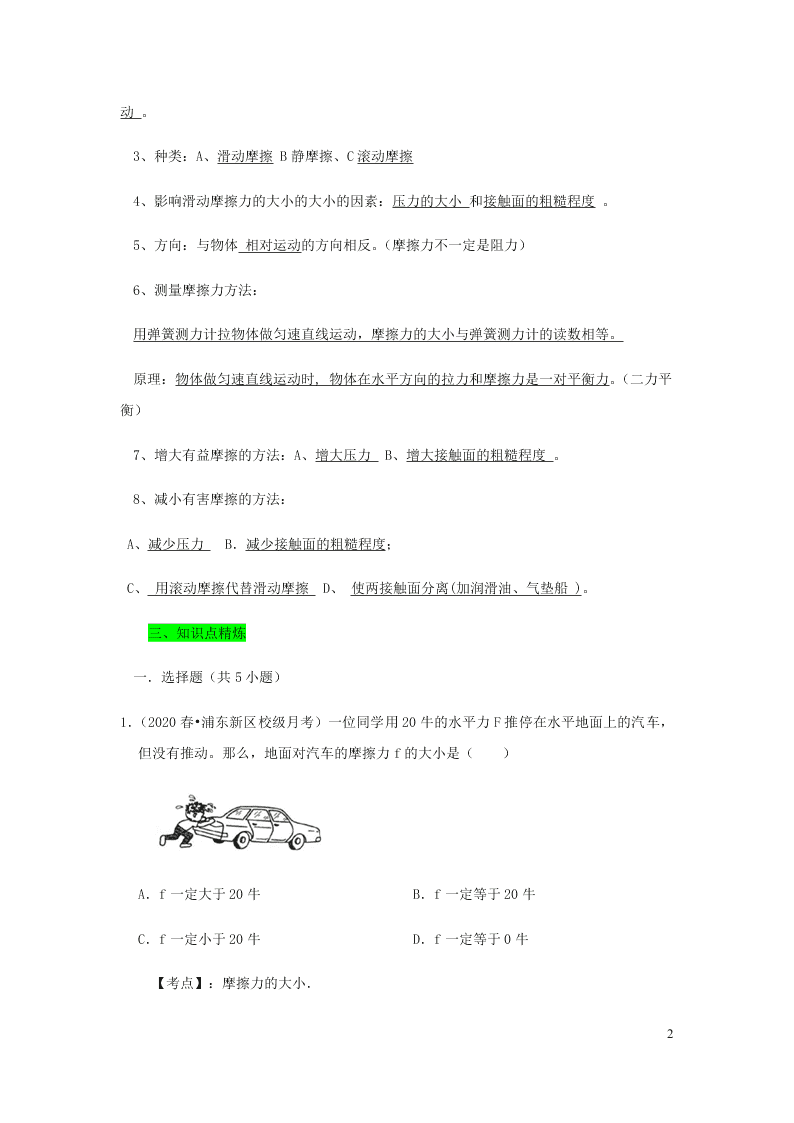 动 。
3、种类：A、滑动摩擦 B 静摩擦、C 滚动摩擦
4、影响滑动摩擦力的大小的大小的因素：压力的大小 和接触面的粗糙程度 。
5、方向：与物体 相对运动的方向相反。（摩擦力不一定是阻力）
6、测量摩擦力方法：
用弹簧测力计拉物体做匀速直线运动，摩擦力的大小与弹簧测力计的读数相等。
原理：物体做匀速直线运动时, 物体在水平方向的拉力和摩擦力是一对平衡力。（二力平
衡）
7、增大有益摩擦的方法：A、增大压力 B、增大接触面的粗糙程度 。
8、减小有害摩擦的方法：
A、减少压力 B．减少接触面的粗糙程度；
C、 用滚动摩擦代替滑动摩擦 D、 使两接触面分离(加润滑油、气垫船 )。
三、知识点精炼
一．选择题（共 5 小题）
1．（2020 春•浦东新区校级月考）一位同学用 20 牛的水平力 F 推停在水平地面上的汽车，
但没有推动。那么，地面对汽车的摩擦力 f 的大小是（　　）
A．f 一定大于 20 牛 B．f 一定等于 20 牛
C．f 一定小于 20 牛 D．f 一定等于 0 牛
【考点】：摩擦力的大小．
2